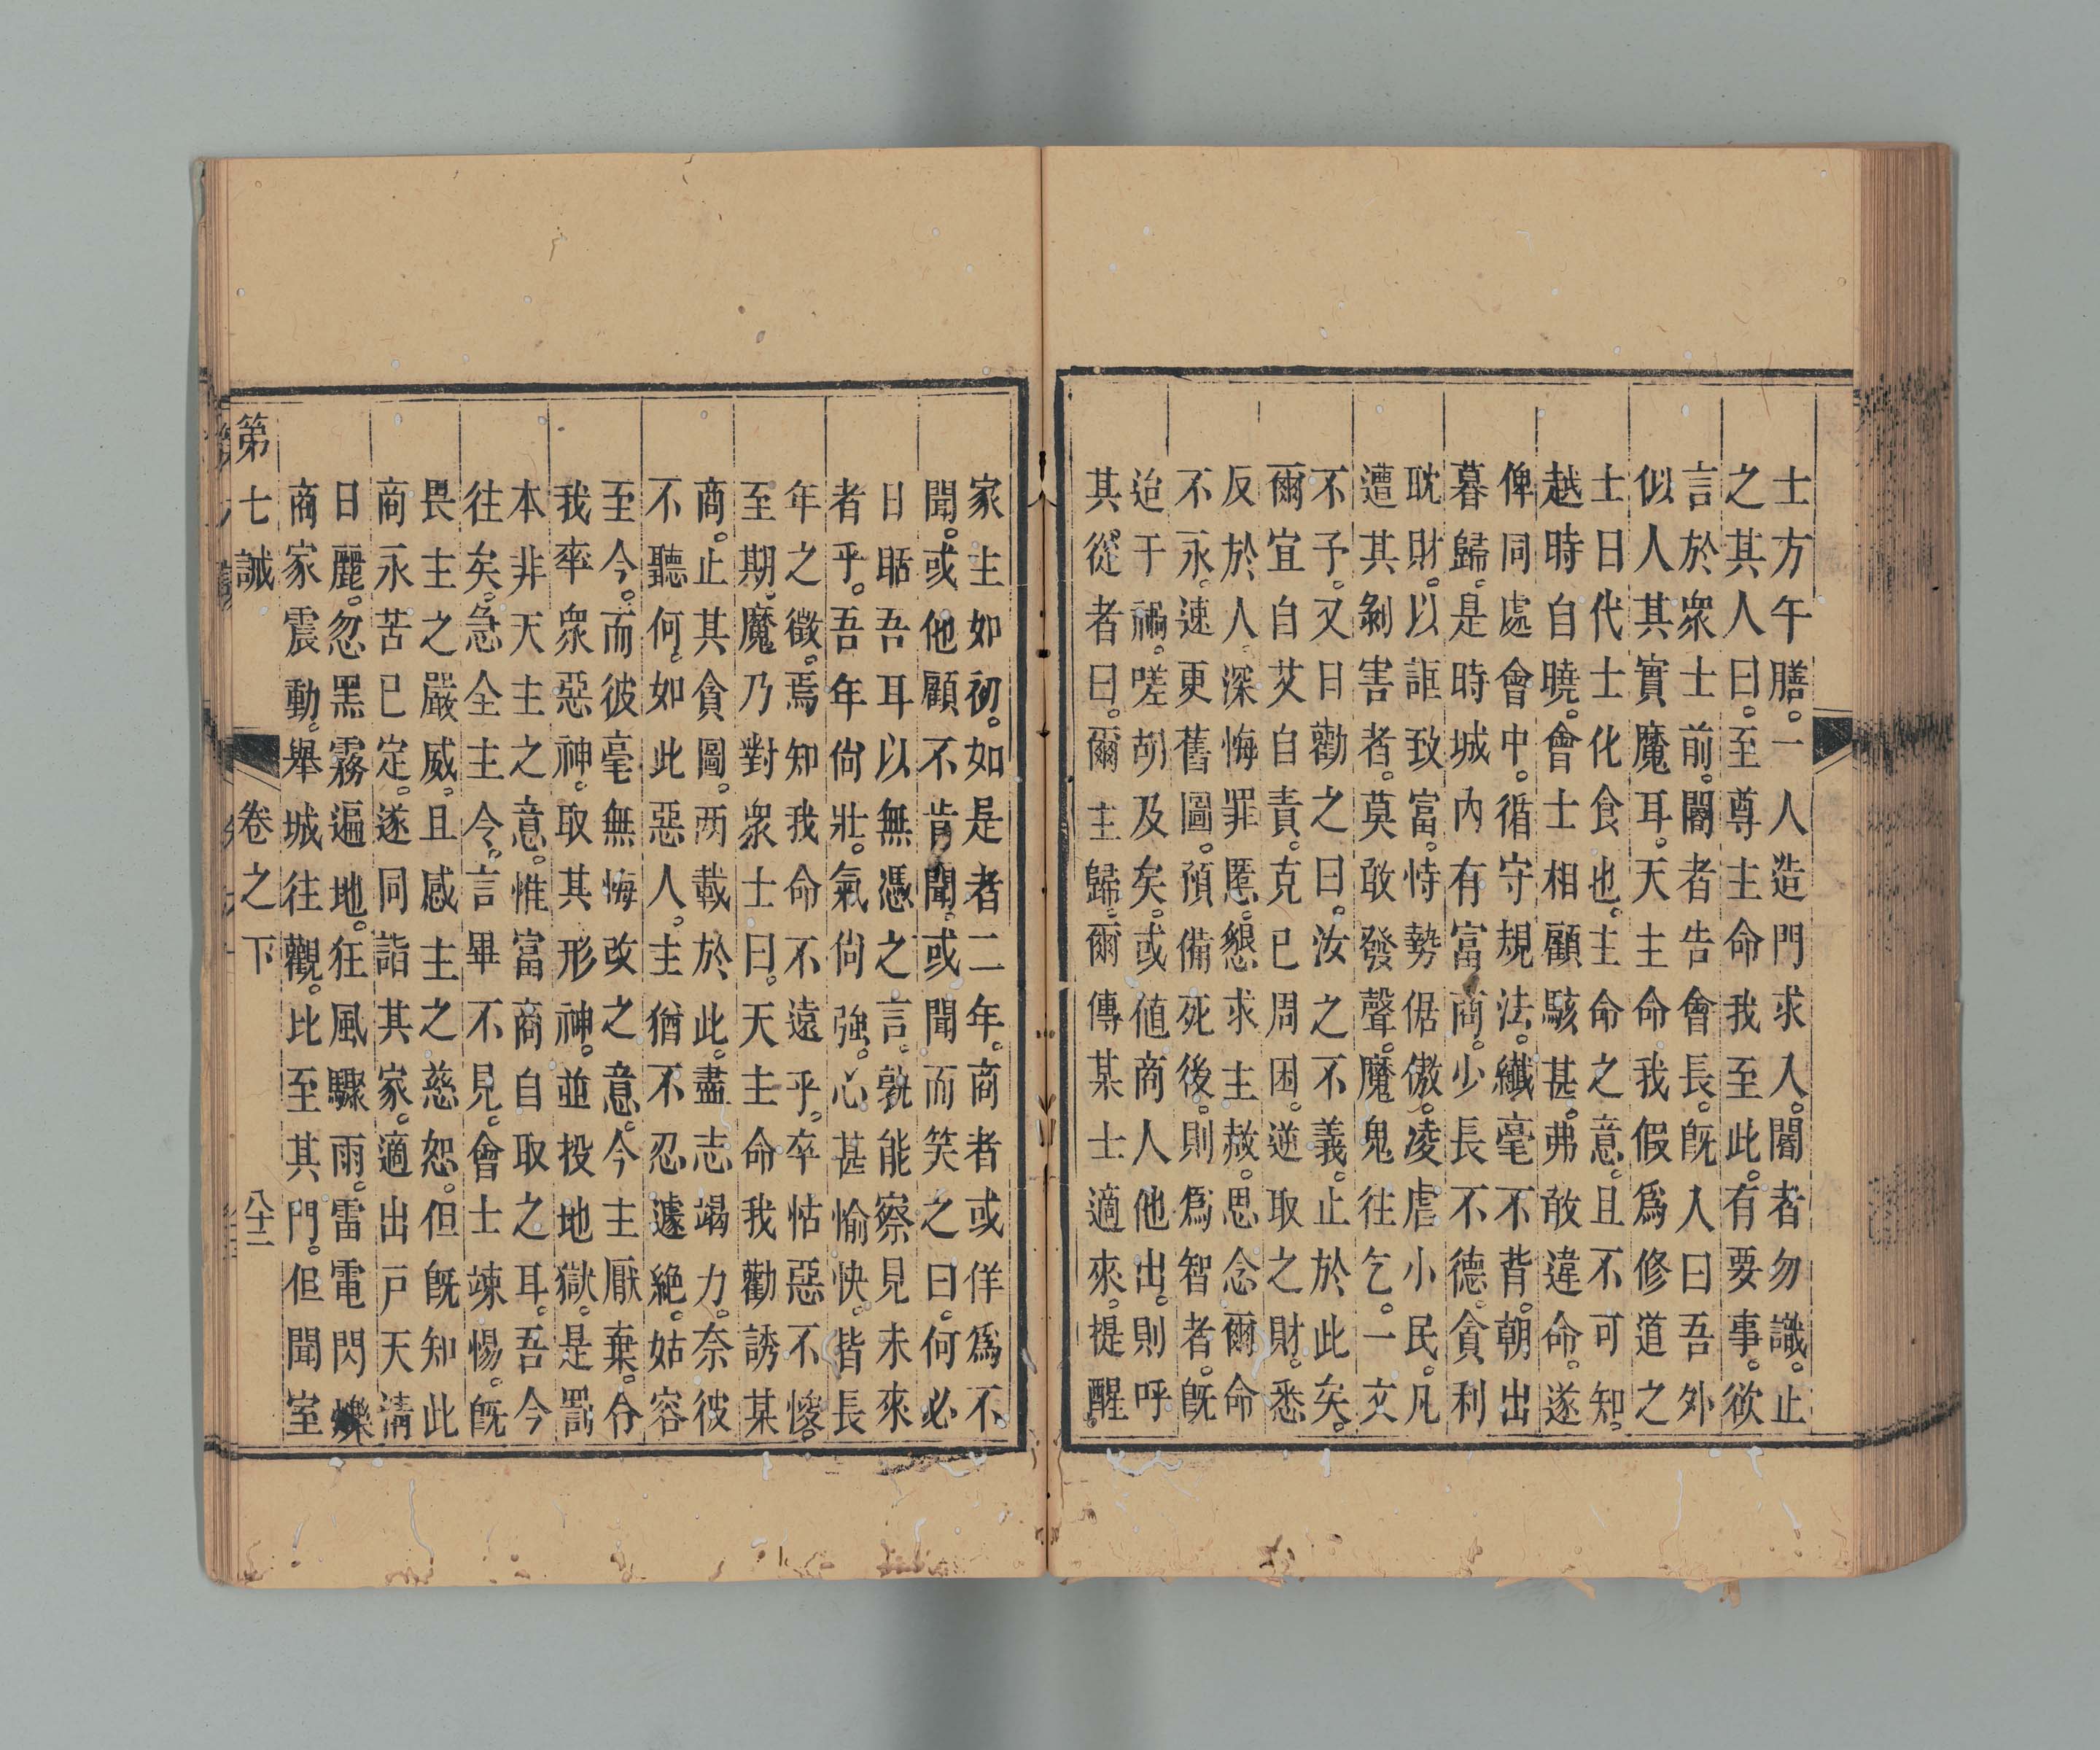 士方午膳。一人造門求入。閽者勿識。止
之其人曰。至尊主命我至此。有要事。欲
言於衆士前。閽者告會長。旣人曰吾外
似人其實魔耳。天主命我假爲修道之
士日代士化食也。主命之意。且不可知。
越時自曉。會士相顧駭甚。弗敢違命。遂
俾同處會中。循守規法。纖毫不背。朝出
暮歸。是時城內有富商。少長不德。貪利
耽財。以詎致富。恃勢倨傲。凌虐小民。凡
遭其剝害者。莫敢發聲。魔鬼往乞。一文
不予。又日勸之曰。汝之不義。止於此矣。
爾宜自艾自責。克已周困。逆取之財。悉
反於人。深悔罪慝。懇求主赦。思念爾命
不永。速更舊圖。預備死後。則爲智者。旣
迨于禍。嗟胡及矣。或値商人他出。則呼
其從者曰。爾主歸。爾傳某士適來。提醒
家主如初。如是者二年。商者或佯爲不
聞。或他顧不肯聞。或聞而笑之曰。何必
日聒吾耳以無憑之言。孰能察見未來
者乎。吾年尙壯。氣尙強。心甚愉快。皆長
年之徵。焉知我命不遠乎。卒怙惡不悛。
至期。魔乃對衆士曰。天主命我勸誘某
商。止其貪圖。两載於此。盡志竭力。奈彼
不聽何。如此惡人。主猶不忍遽絕。姑容
至今。而彼毫無悔改之意。今主厭棄。令
我率衆惡神。取其形神。並投地獄。是罰
本非天主之意。惟富商自取之耳。吾今
往矣。急全主令。言畢不見。會士竦惕。旣
畏主之嚴威。且感主之慈恕。但旣知此
商永苦已定。遂同詣其家。適出戸天淸
日麗。忽黑霧遍地。狂風驟雨。雷電閃爍
商家震動。舉城往觀。比至其門。但聞室
第七誡 卷之下 八十二